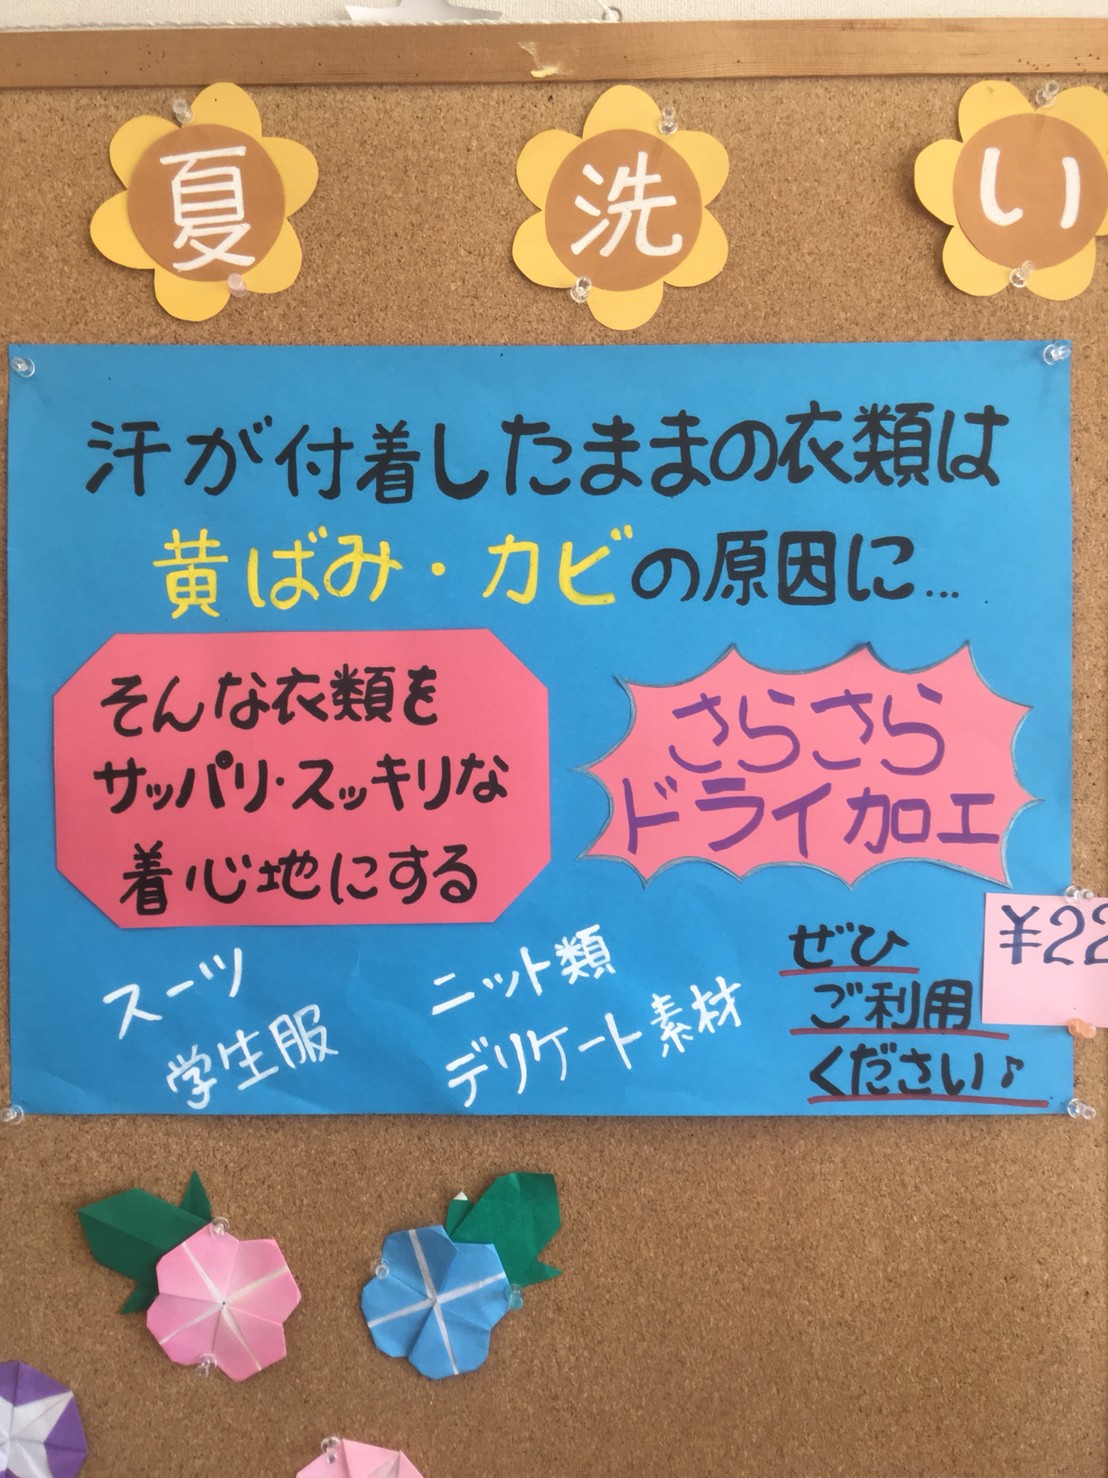 夏洗い
汗が付着したままの衣類は
黄ばみ・カビの原因に…
そんな衣類を
サッパリ・スッキリな
着心地にする
さらさら
ドライ加工
スーツ
学生服
ニット類
デリケート素材
ぜひ
ご利用
ください♪
¥22